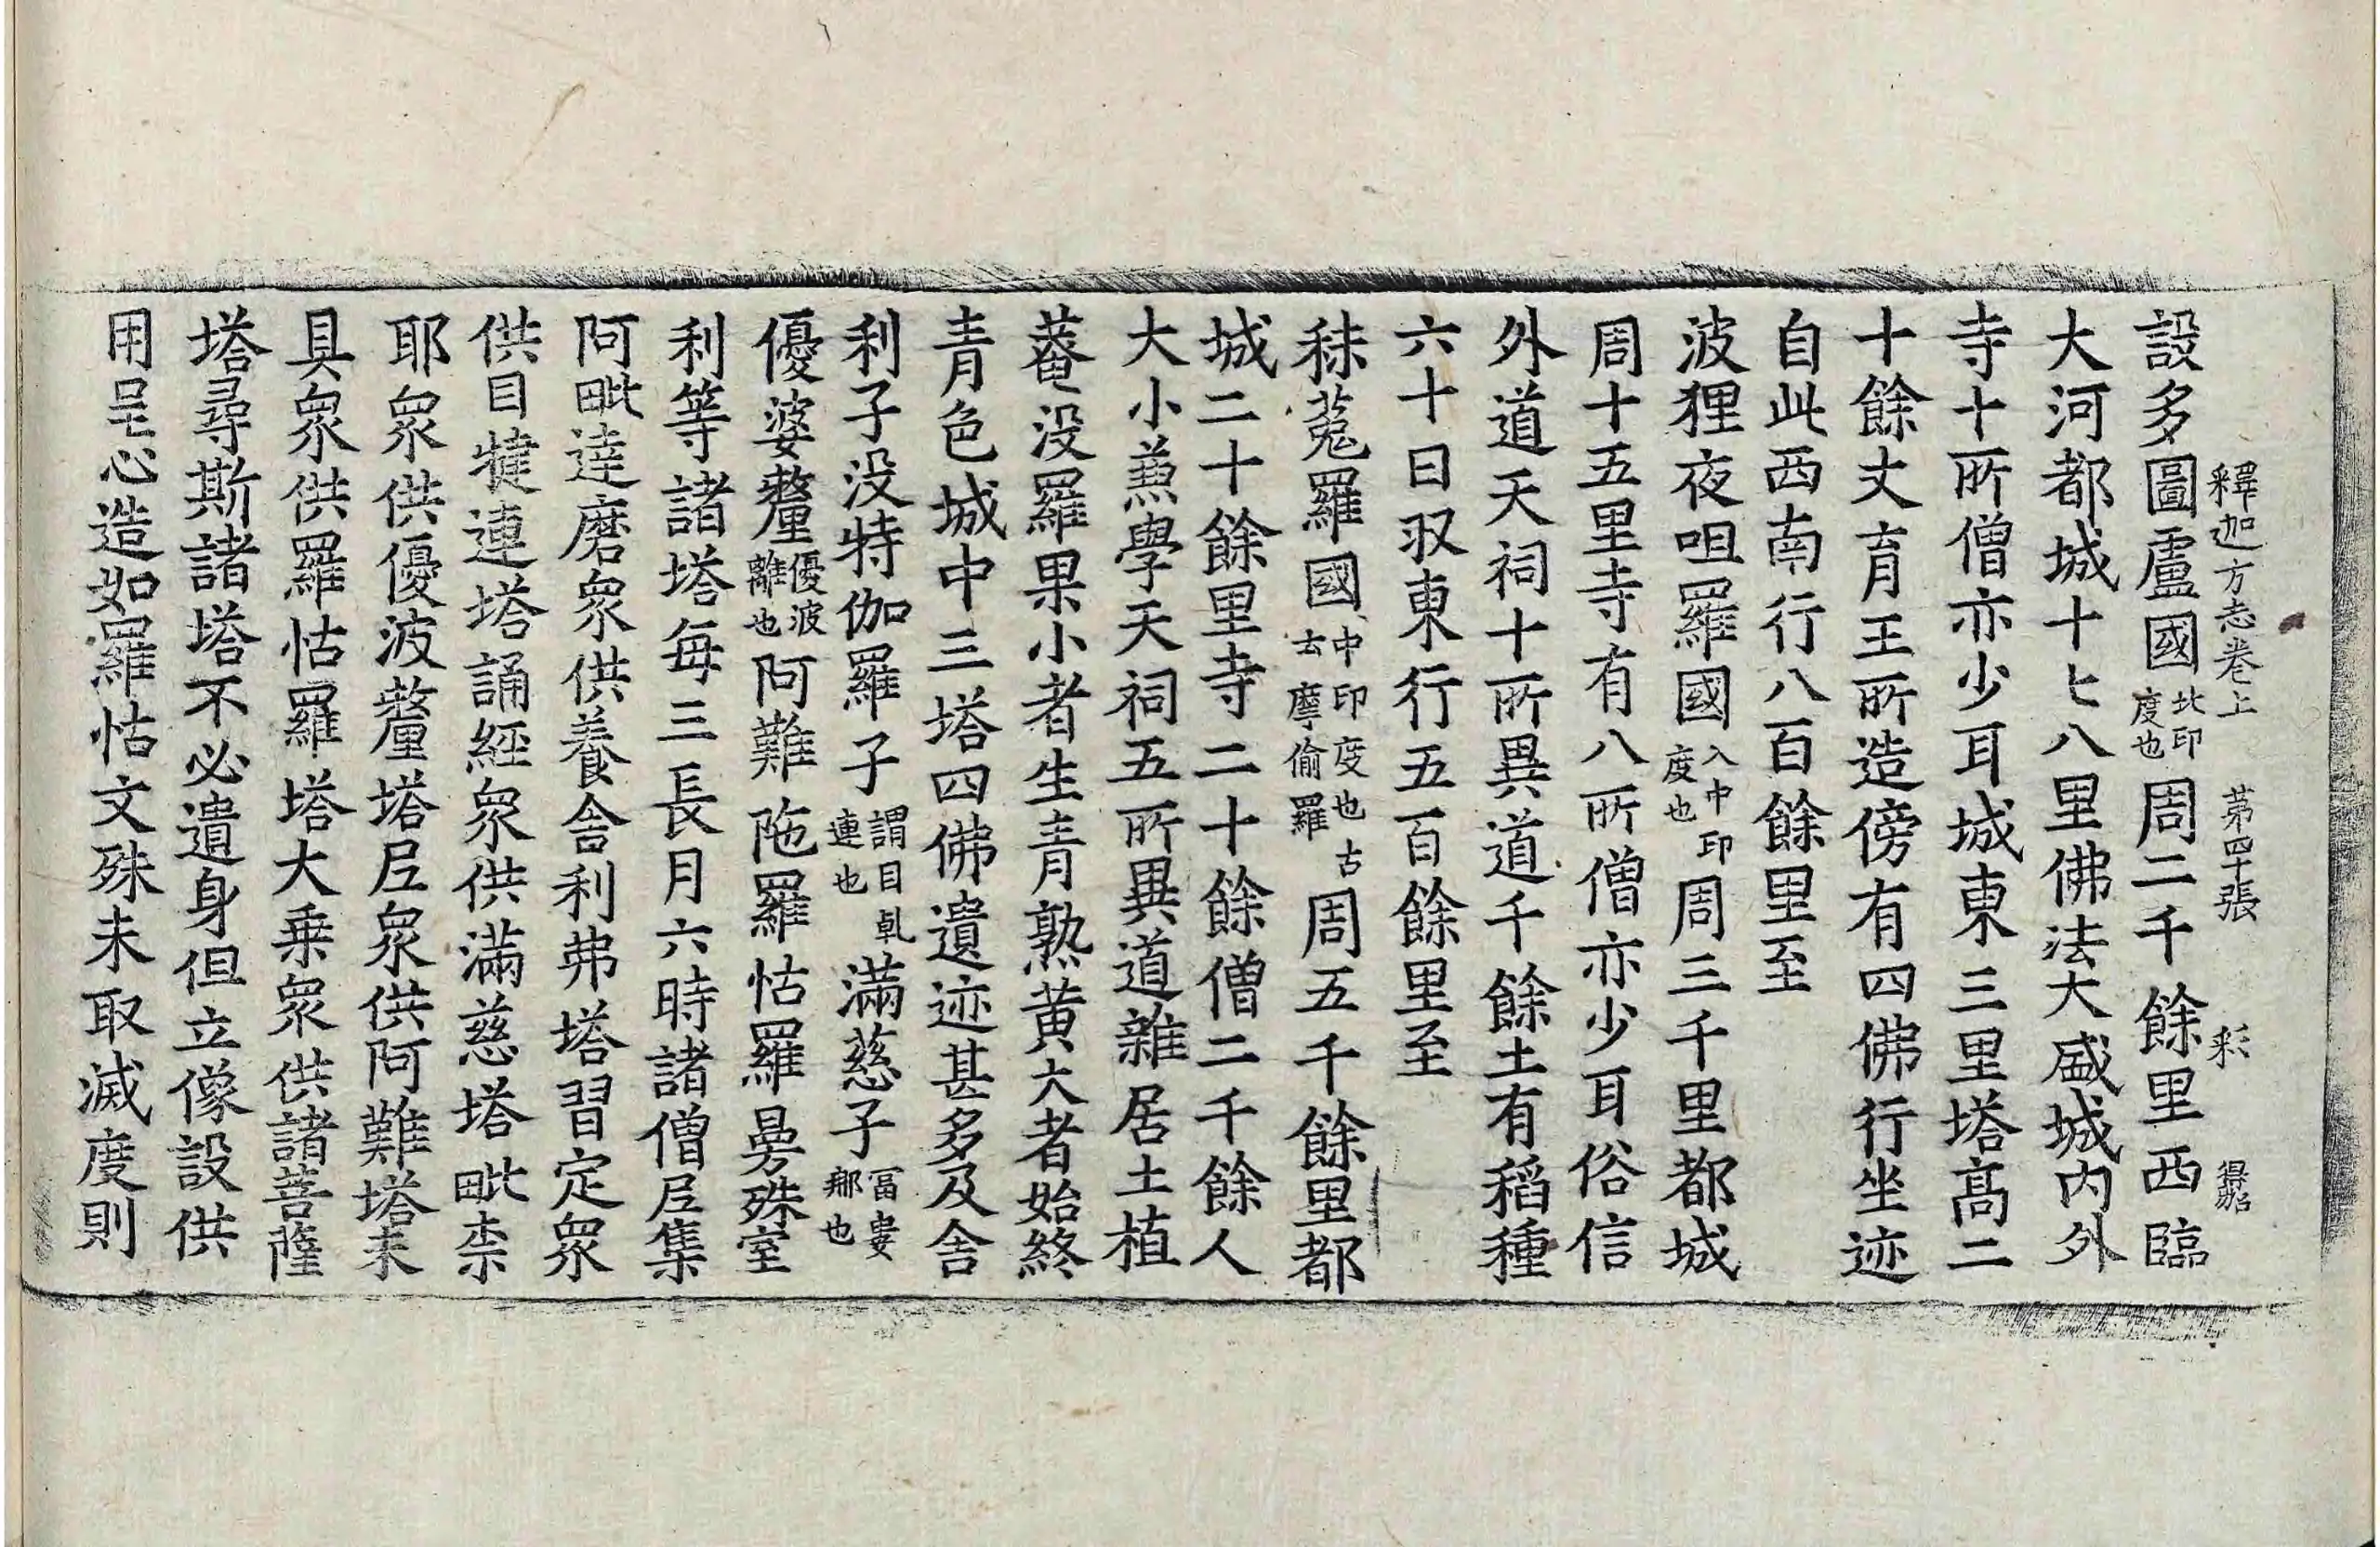 釋迦方志卷上 第四十張 彩
設多圖盧國北印度也周二千餘里西臨
大河都城十七八里佛法大盛城内外
寺十所僧亦少耳城東三里塔高二
十餘丈育王所造傍有四佛行坐迹
自此西南行八百餘里至
波狸夜呾羅國入中印度也周三千里都城
周十五里寺有八所僧亦少耳俗信
外道天祠十所異道千餘土有稻種
六十日収東行五百餘里至
秣菟羅國中印度也古云摩偷羅周五千餘里都
城二十餘里寺二十餘僧二千餘人
大小兼學天祠五所異道雜居土植
菴没羅果小者生青熟黄大者始終
青色城中三塔四佛遺迹甚多及舎
利子没特伽羅子謂目乹連也滿慈子冨婁那也
優婆釐優波離也阿難陁羅怙羅曼殊室
利等諸塔每三長月六時諸僧尼集
阿毗達磨衆供養舎利弗塔習定衆
供目犍連塔誦經衆供滿慈塔毗柰
耶衆供優波釐塔尼衆供阿難塔未
具衆供羅怙羅塔大乗衆供諸菩薩
塔尋斯諸塔不必遺身但立像設供
用呈心造如羅怙文殊未取滅度則